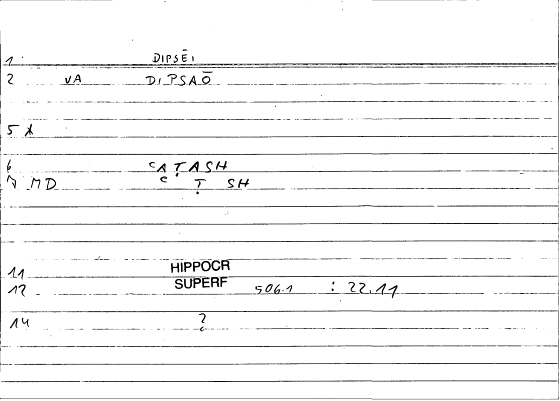 1 DIPSĒI
2 VA DIPSAŌ
5 A
6 ʿAṬASH
7 MD ʿṬSH
11 HIPPOCR
12 SUPERF 506.1 : 22.11
14 ?